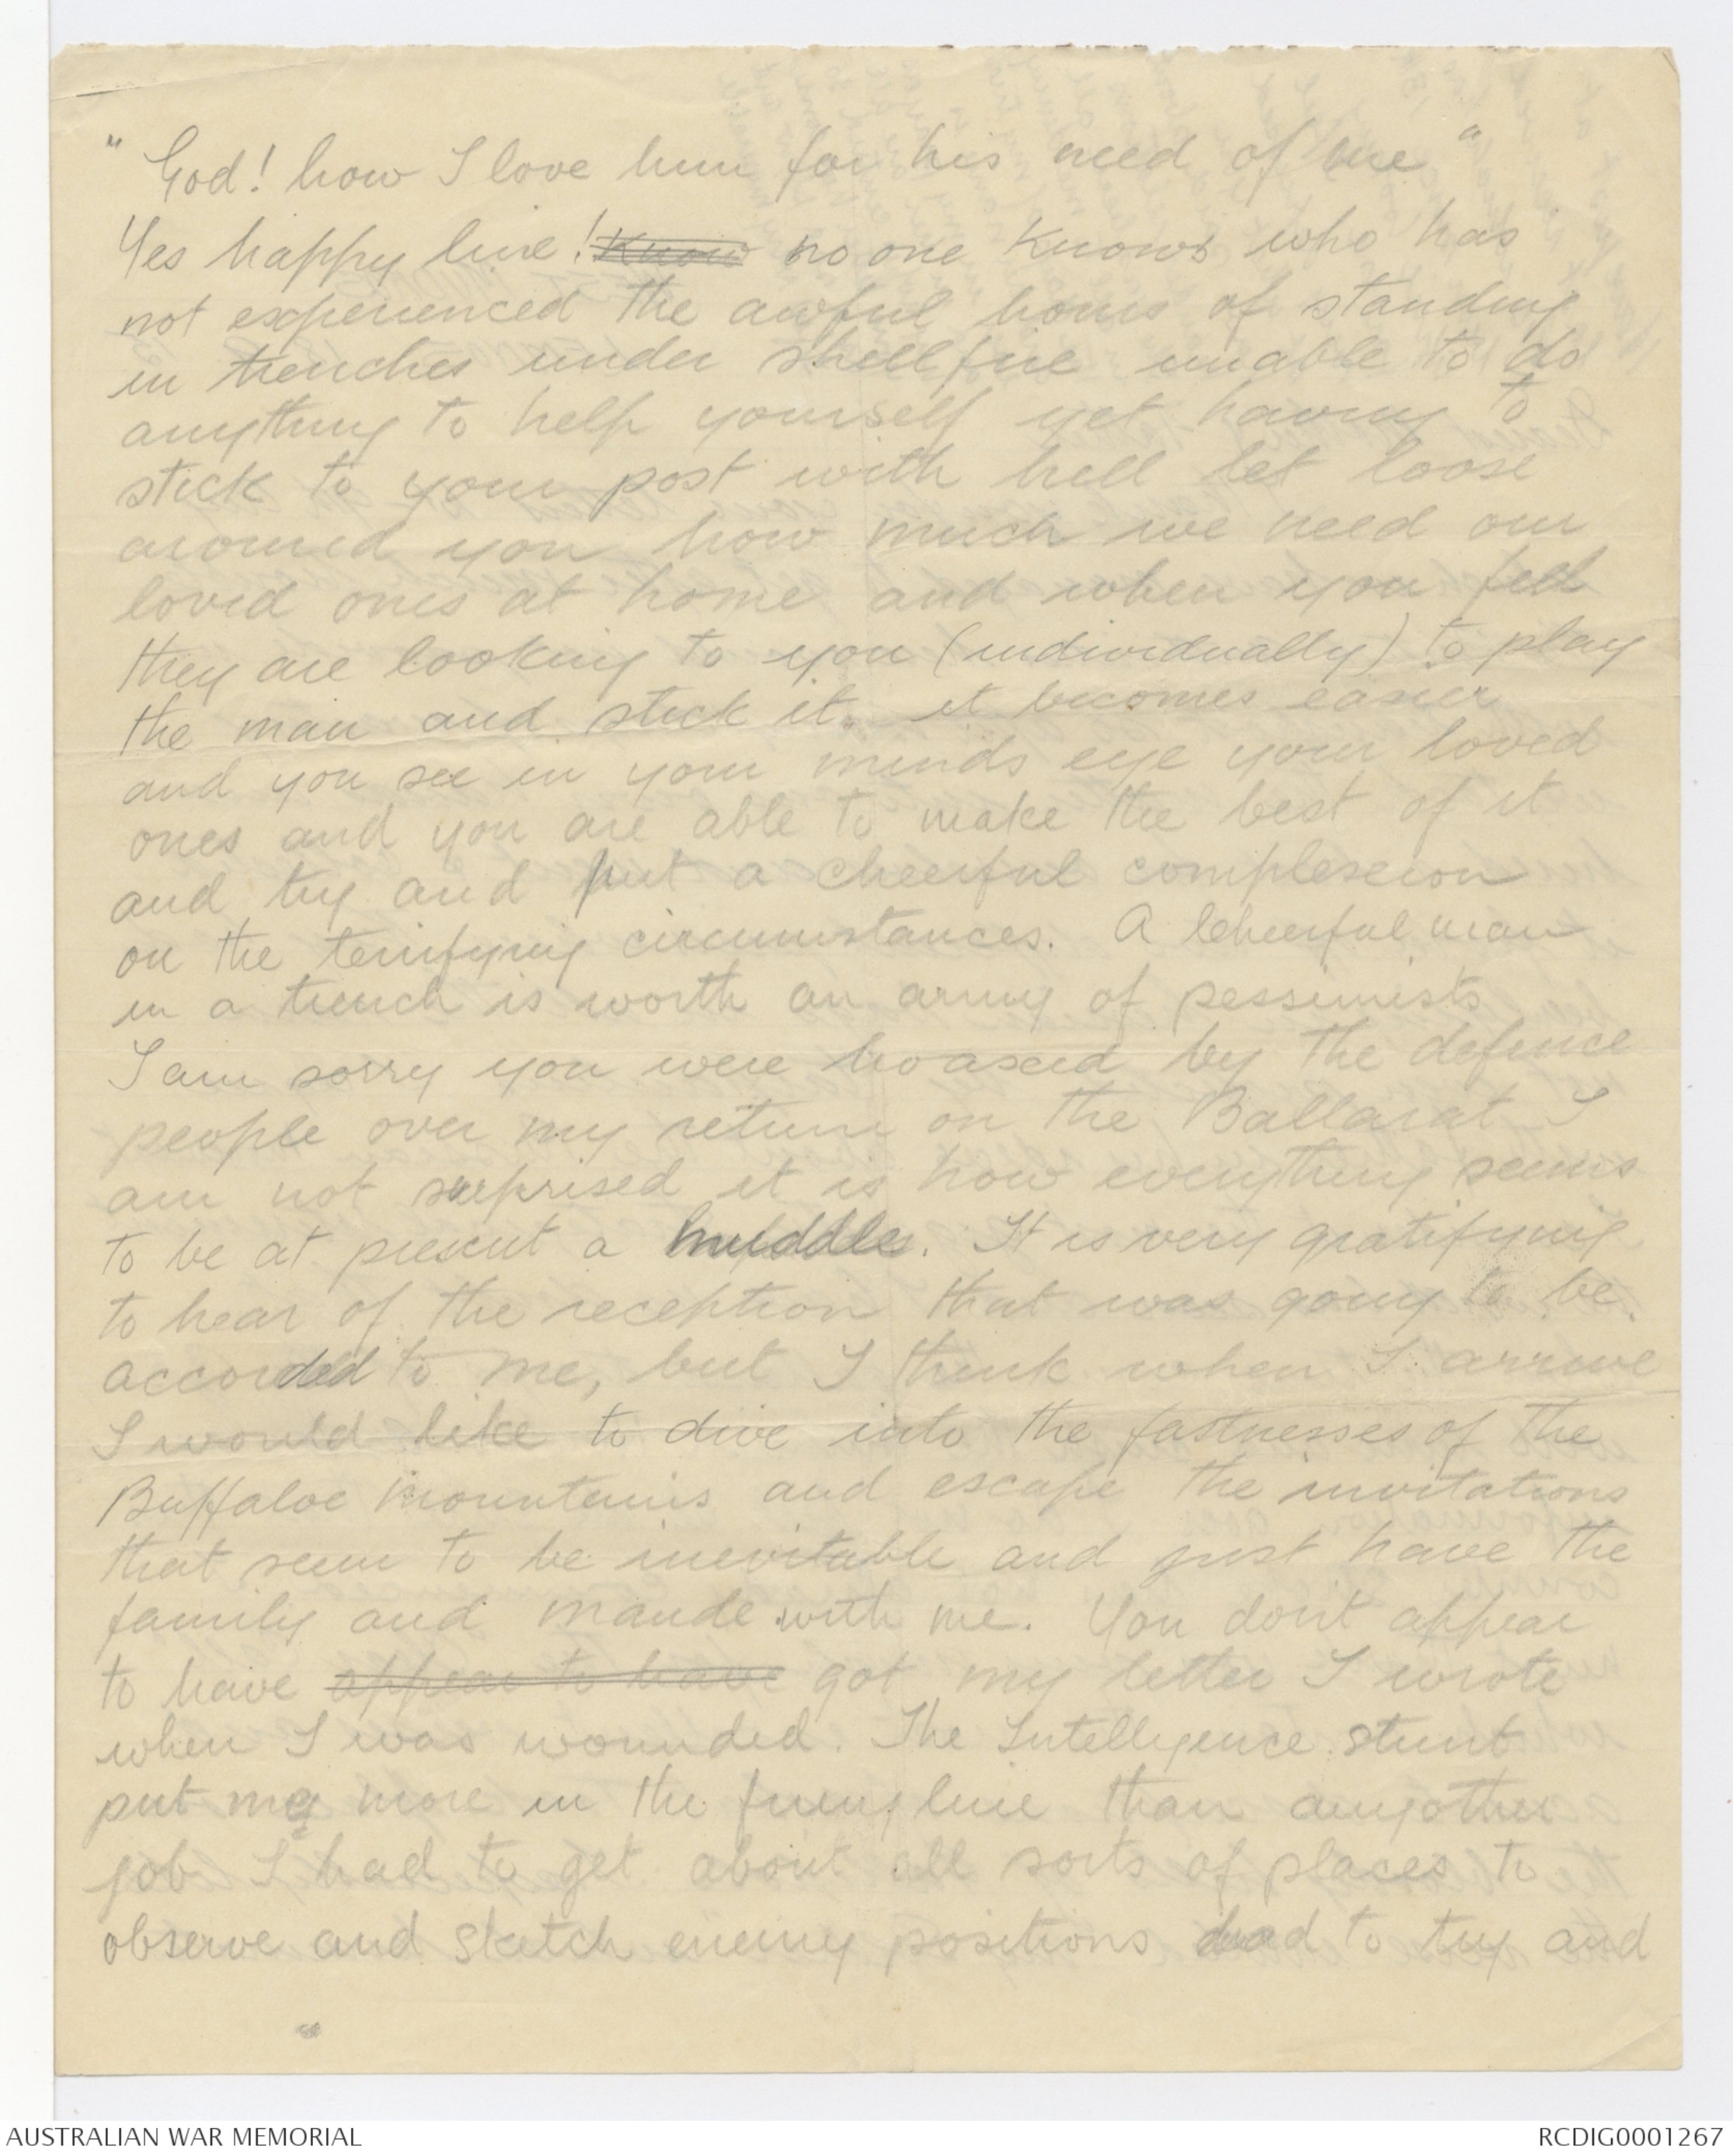 " God! how I love him for his need of me "
Yes happy line! Know no one knows who has
not experienced the awful hours of standing
in trenches under shellfire unable to do
anything to help yourself yet having to
stick to your post with hell let loose
around you how much we need our
loved ones at home and when you feel
they are looking to you (individually) to play
the man and stick it. it becomes easier
and you see in your minds eye your loved
ones and you are able to make the best of it
and try and put a cheerful complexion
on the terrifying circumstances. A cheerful man
in a trench is worth an army of pessimists
I am sorry you were hoaxed by the defence
people over my return on the Ballarat I
am not surprised it is how everything seems
to be at present a muddle. It is very gratifying
to hear of the reception that was going to be
accorded to me, but I think when I arrive
I would like to dive into the fastnesses of the
Buffaloe Mountains and escape the invitations
that seem to be inevitable and just have the
family and Maude with me. You don't appear
to have appear to have got my letter I wrote
when I was wounded. The Intelligence stunt
put me more in the firing line than anyother
job I had to get about all sorts of places to
observe and sketch enemy positions had to try and
AUSTRALIAN WAR MEMORIAL
RCDIG0001267